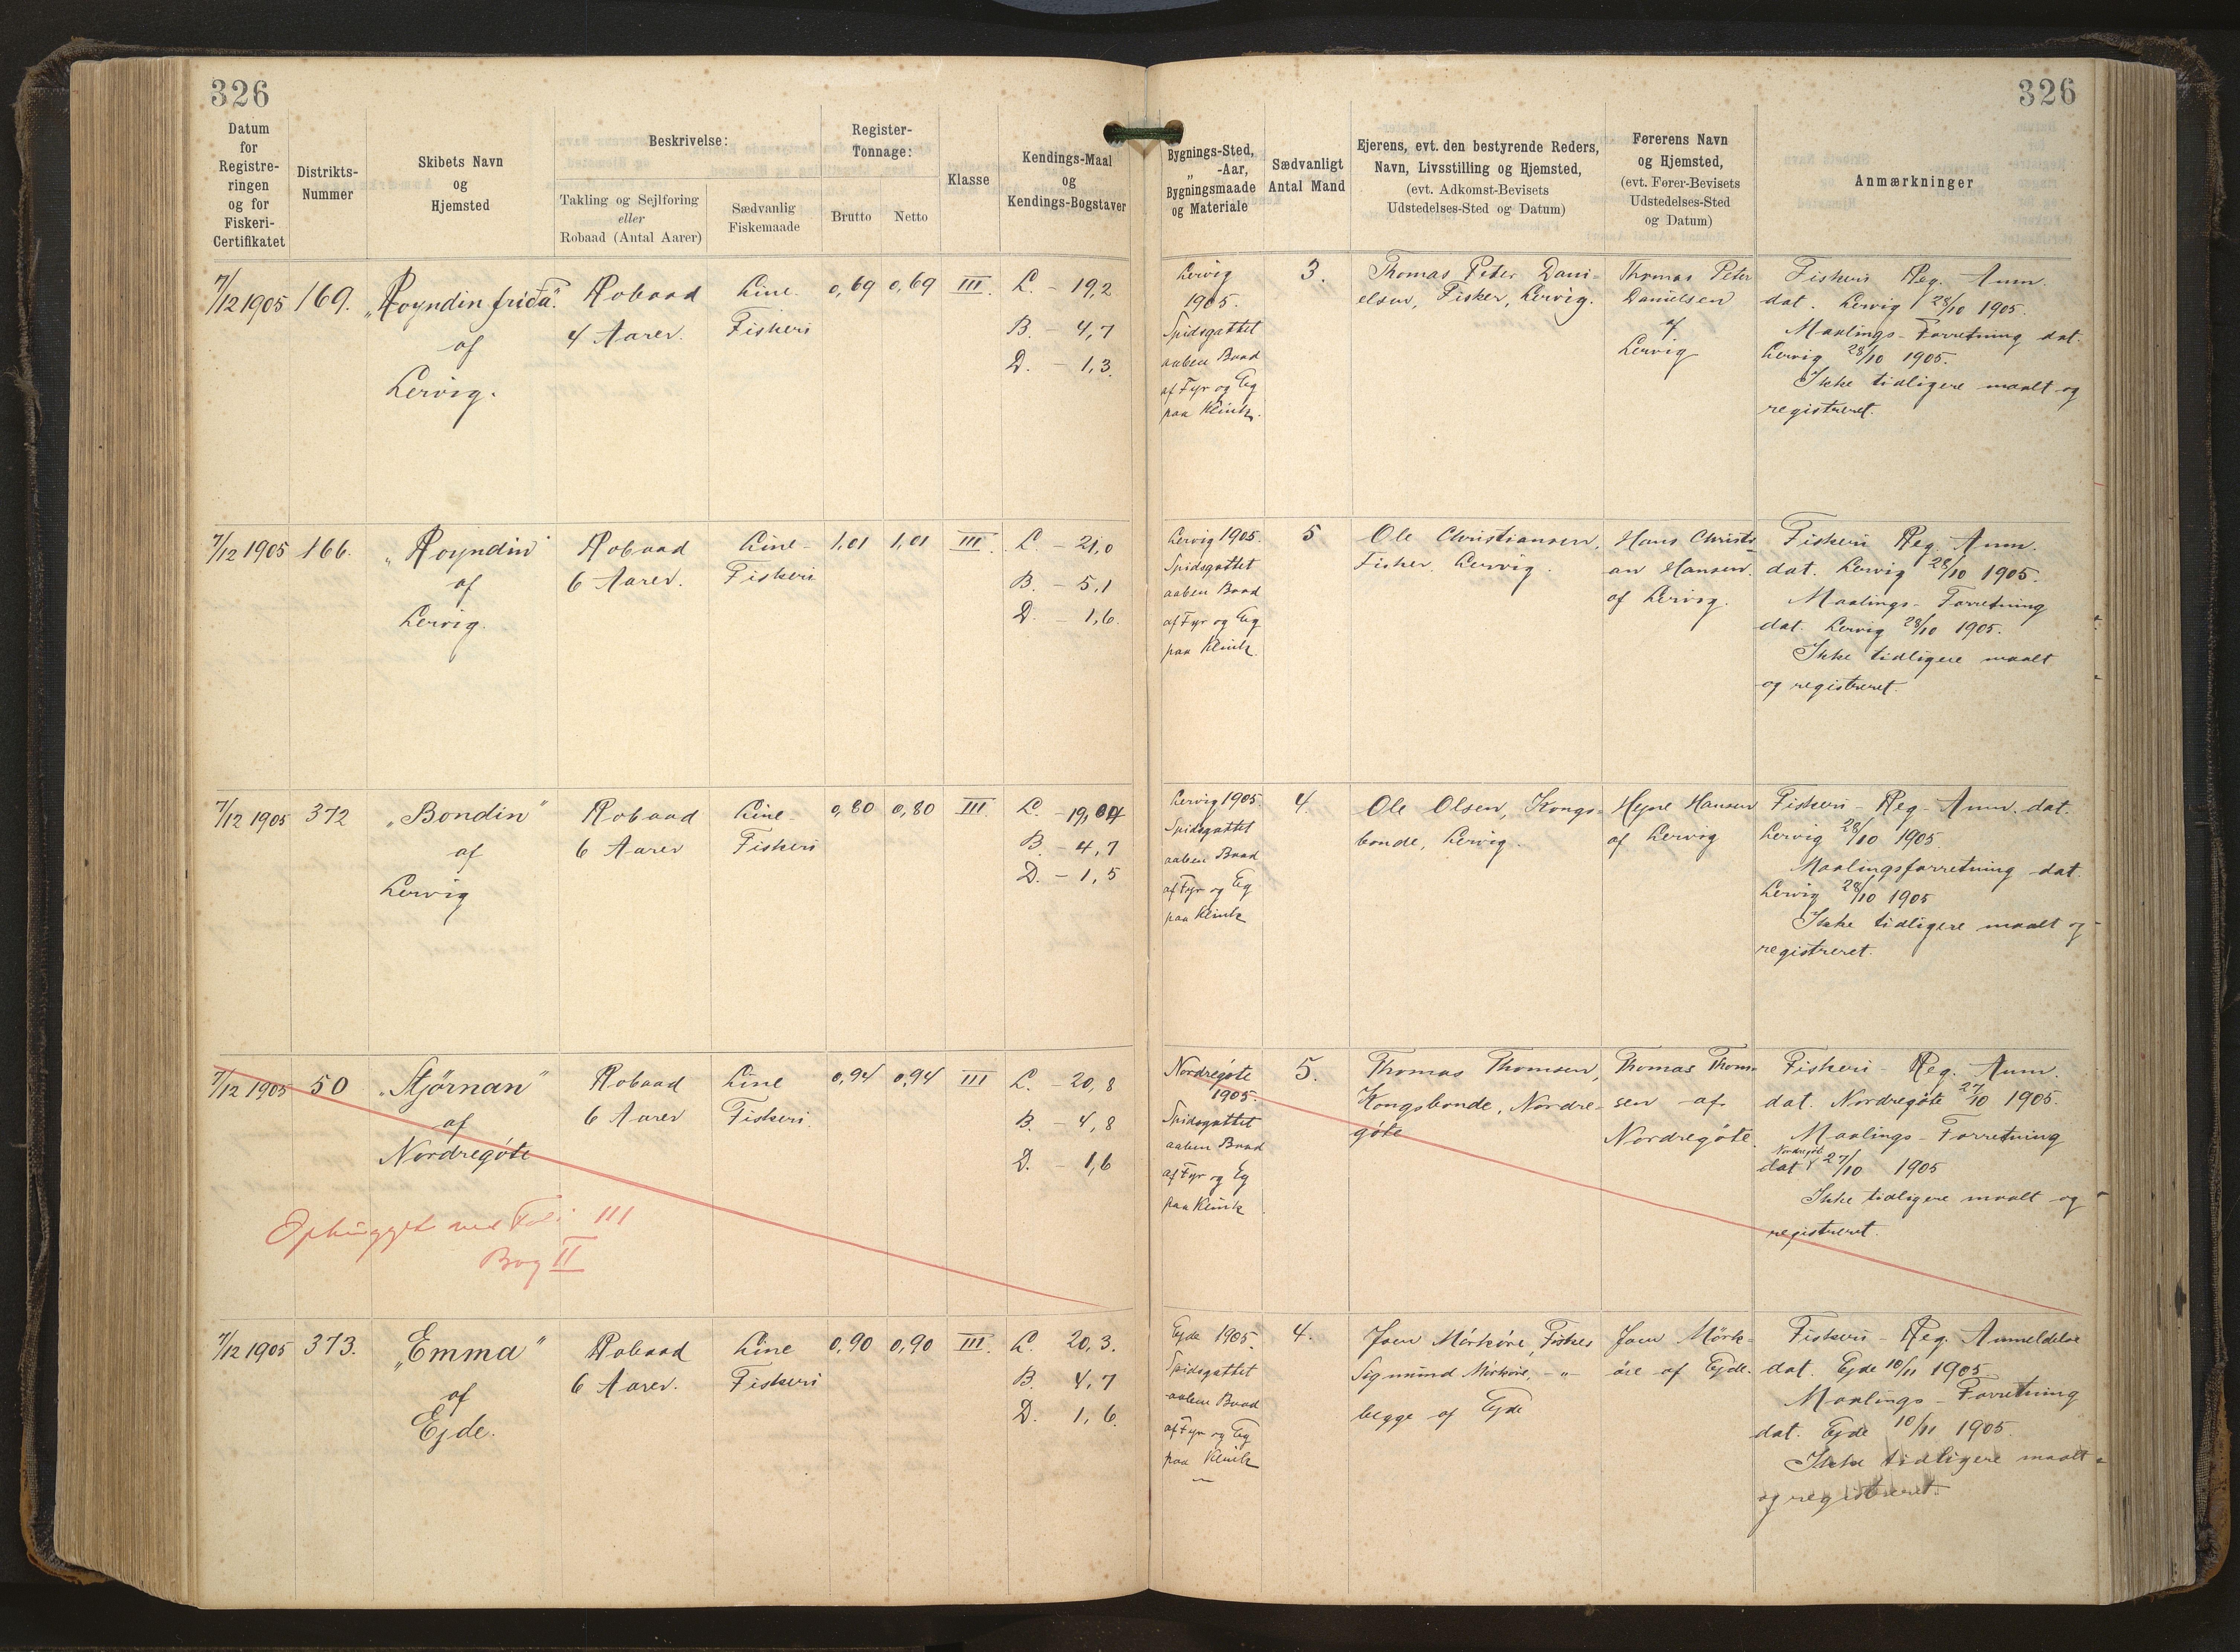 326
326
Datum
for
Registre-
ringen
og for
Fiskeri-
Certifikatet
Distrikts-
Nummer
Skibets Navn
og
Hjemsted
Beskrivelse:
Takling og Sejlføring
eller
Robaad (Antal Aarer)
Sædvanlig
Fiskemaade
Register-
Tonnage:
Brutto
Netto
Klasse
Kendings-Maal
og
Kendings-Bogstaver
Bygnings-Sted,
„ -Aar,
Bygningsmaade
og Materiale
Sædvanligt
Antal Mand
Ejerens, evt. den bestyrende Reders,
Navn, Livsstilling og Hjemsted,
(evt. Adkomst-Bevisets
Udstedelses-Sted og Datum)
Førerens Navn
og Hjemsted,
(evt. Fører-Bevisets
Udstedelses-Sted
og Datum)
Anmærkninger
7/12 1905
169.
„Royndin fríða“
af
Lervig.
Robaad
4 Aarer.
Line-
Fiskeri
0,69
0,69
III.
L. - 19,2
B. - 4,7
D. - 1,3.
Lervig
1905.
Spidsgattet
aaben Baad
af Fyr og Eg
paa Klink.
3.
Thomas Peter Dani-
elsen, Fisker, Lervig.
Thomas Peter
Danielsen
af
Lervig
Fiskeri Reg. Anm.
dat. Lervig 28/10 1905.
Maalings-Forretning dat.
Lervig 28/10 1905.
Ikke tidligere maalt og
registreret.
7/12 1905
166.
„Royndin“
af
Lervig.
Robaad
6 Aarer.
Line-
Fiskeri
1,01
1,01
III.
L. - 21,0
B. - 5,1
D. - 1,6.
Lervig 1905.
Spidsgattet
aaben Baad
af Fyr og Eg
paa Klink.
5
Ole Christiansen,
Fisker, Lervig.
Hans Christi-
an Hansen
af Lervig.
Fiskeri Reg. Anm.
dat. Lervig 28/10 1905.
Maalings-Forretning
dat. Lervig 28/10 1905.
Ikke tidligere maalt
og registreret.
7/12 1905
372
„Bondin“
af
Lervig
Robaad
6 Aarer
Line-
Fiskeri
0,80
0,80
III.
B. - 4,7
D. - 1,5
Lervig 1905
Spidsgattet
aaben Baad
af Fyr og Eg
paa Klink
4.
Ole Olsen, Kongs-
bonde, Lervig.
Hansen
af Lervig
Fiskeri-Reg-Anm. dat.
Lervig 28/10 1905.
Maalingsforretning dat.
Lervig 28/10 1905
Ikke tidligere maalt og
registreret.
7/12 1905
50
„Stjörnan“
af
Nordregöte
Robaad
6 Aarer
Line
Fiskeri.
0,94
0,94
III
L. - 20,8
B. - 4,8
D. - 1,6
Ophugget
III
Bog II
Nordregöte
1905.
Spidsgattet
aaben Baad
af Fyr og Eg
paa Klink
5.
Thomas Thomsen,
Kongsbonde, Nordre-
göte
Thomas Thom-
sen af
Nordregöte.
Fiskeri-Reg. Anm.
dat. Nordregöte 27/10 1905.
Maalings-Forretning
Nordregöte
dat 27/10 1905
Ikke tidligere maalt og
registreret.
7/12 1905
373.
„Emma“
af
Ejde.
Robaad
6 Aarer.
Line
Fiskeri
0,90
0,90
III.
L. 20,3.
B. 4,7
D. 1,6.
Ejde 1905.
Spidsgattet
aaben Baad
af Fyr og Eg
paa Klink
4.
Joen Mörköre, Fisker
Sigmund Mörköre, -"-
begge af Ejde
Joen Mörk-
öre af Ejde.
Fiskeri-Reg. Anmeldelse
dat. Ejde 10/11 1905
Maalings-Forretning
dat. Ejde 10/11 1905.
Ikke tidligere maalt
og registreret.